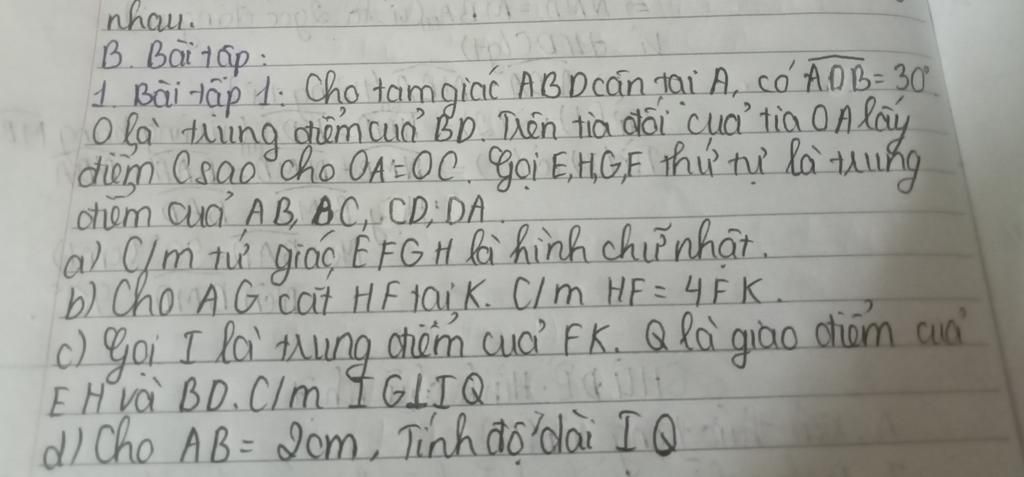 nhau.
B. Bài tập:
1. Bài tập 1: Cho tam giác ABD cân tại A, có ADB = 30°
O là trung điểm của BD. Trên tia đối của tia OA lấy
điểm C sao cho OA = OC. Gọi E,H,G,F thứ tự là trung
điểm của AB, BC, CD, DA.
a) C/m tứ giác EFGH là hình chữ nhật.
b) Cho AG cắt HF tại K. C/m HF = 4FK.
c) Gọi I là trung điểm của FK. Q là giao điểm của
EH và BD. C/m IG⊥IQ
d) Cho AB = 2cm, Tính độ dài IQ